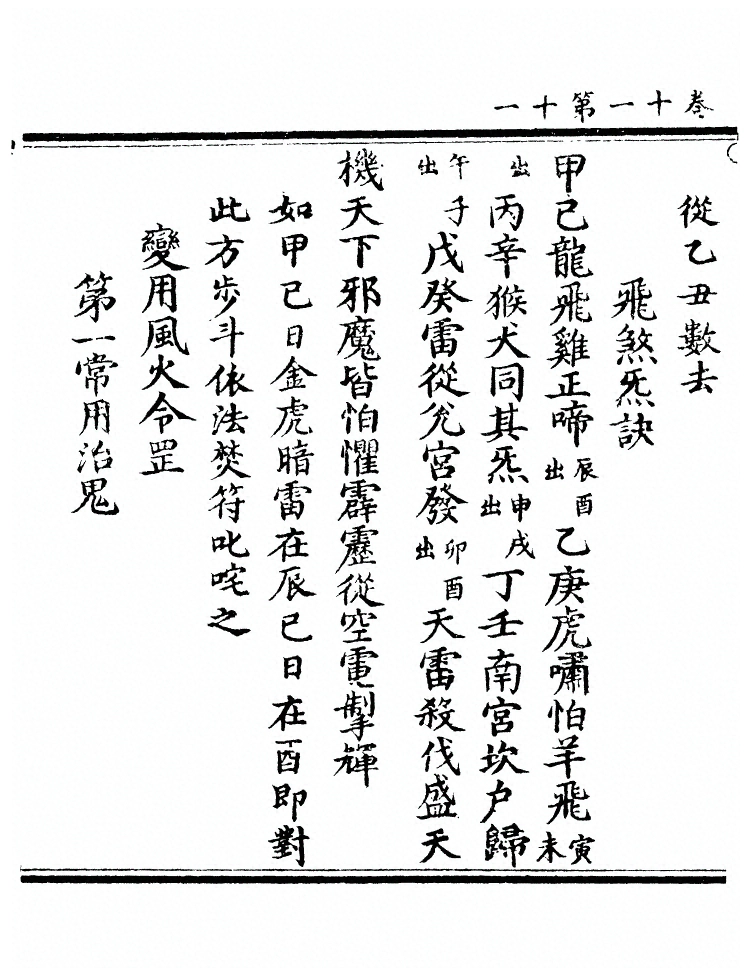 卷十一第十一
從乙丑數去
飛煞炁訣
甲己龍飛雞正啼辰酉出乙庚虎嘯怕羊飛寅未
出丙辛猴犬同其炁申戌出丁壬南宮坎户歸
午子出戊癸雷從兊宮發卯酉出天雷殺伐盛天
機天下邪魔皆怕懼霹靂從空電掣輝
如甲己日金虎暗雷在辰己日在酉即對
此方步斗依法焚符叱咤之
變用風火令罡
第一常用治鬼